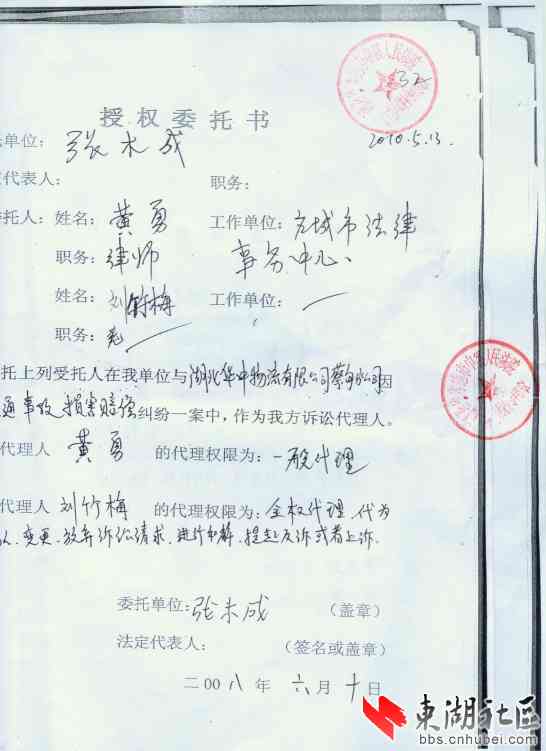 授权委托书
2010.5.13.
托单位：张木成
代表人： 职务：
委托人：姓名：黄勇 工作单位：方城市法律
职务：律师 事务中心、
姓名：刘竹梅 工作单位：
职务：
托上列受托人在我单位与湖北华中物流有限公司蔡甸公司因
通事故损害赔偿纠纷一案中，作为我方诉讼代理人。
代理人 黄勇 的代理权限为：一般代理
代理人 刘竹梅 的代理权限为：全权代理、代为
认、变更、放弃诉讼请求、进行和解、提起反诉或者上诉。
委托单位：张木成 （盖章）
法定代表人： （签名或盖章）
二00八年六月十日
東湖社区
bbs.cnhubei.com